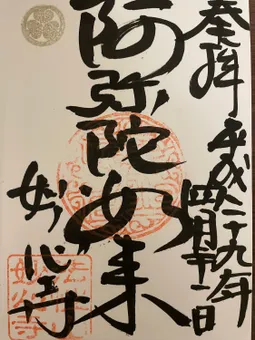 奉拝
平成二十九年
四月
日
阿弥陀如来
妙心寺